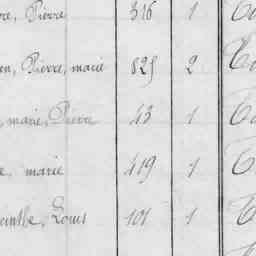 re, Pierre 316 1
en, Pierre, marie 825 2
, marie, Pierre 43 1
e, marie 419 1
cinthe, Louis 101 1